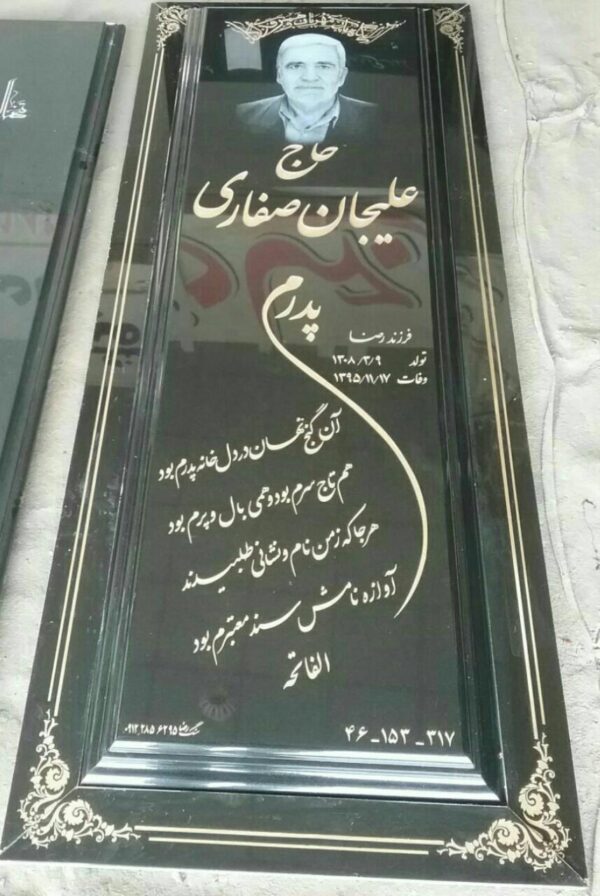 آرامگاه پدری مهربان و همسری فداکار
حاج
علیجان صفاری
پدرم
فرزند رضا
تولد ۱۳۰۸/۳/۹
وفات ۱۳۹۵/۱۱/۱۷
آن گنج نهان در دل خانه پدرم بود
هم تاج سرم بود و همی بال و پرم بود
هر جا که ز من نام و نشانی طلبیدند
آوازه نامش سند معتبرم بود
الفاتحه
۳۱۷ - ۱۵۳ - ۴۶
سنگ رضا ۰۹۱۲ ۲۸۵ ۶۲۹۵